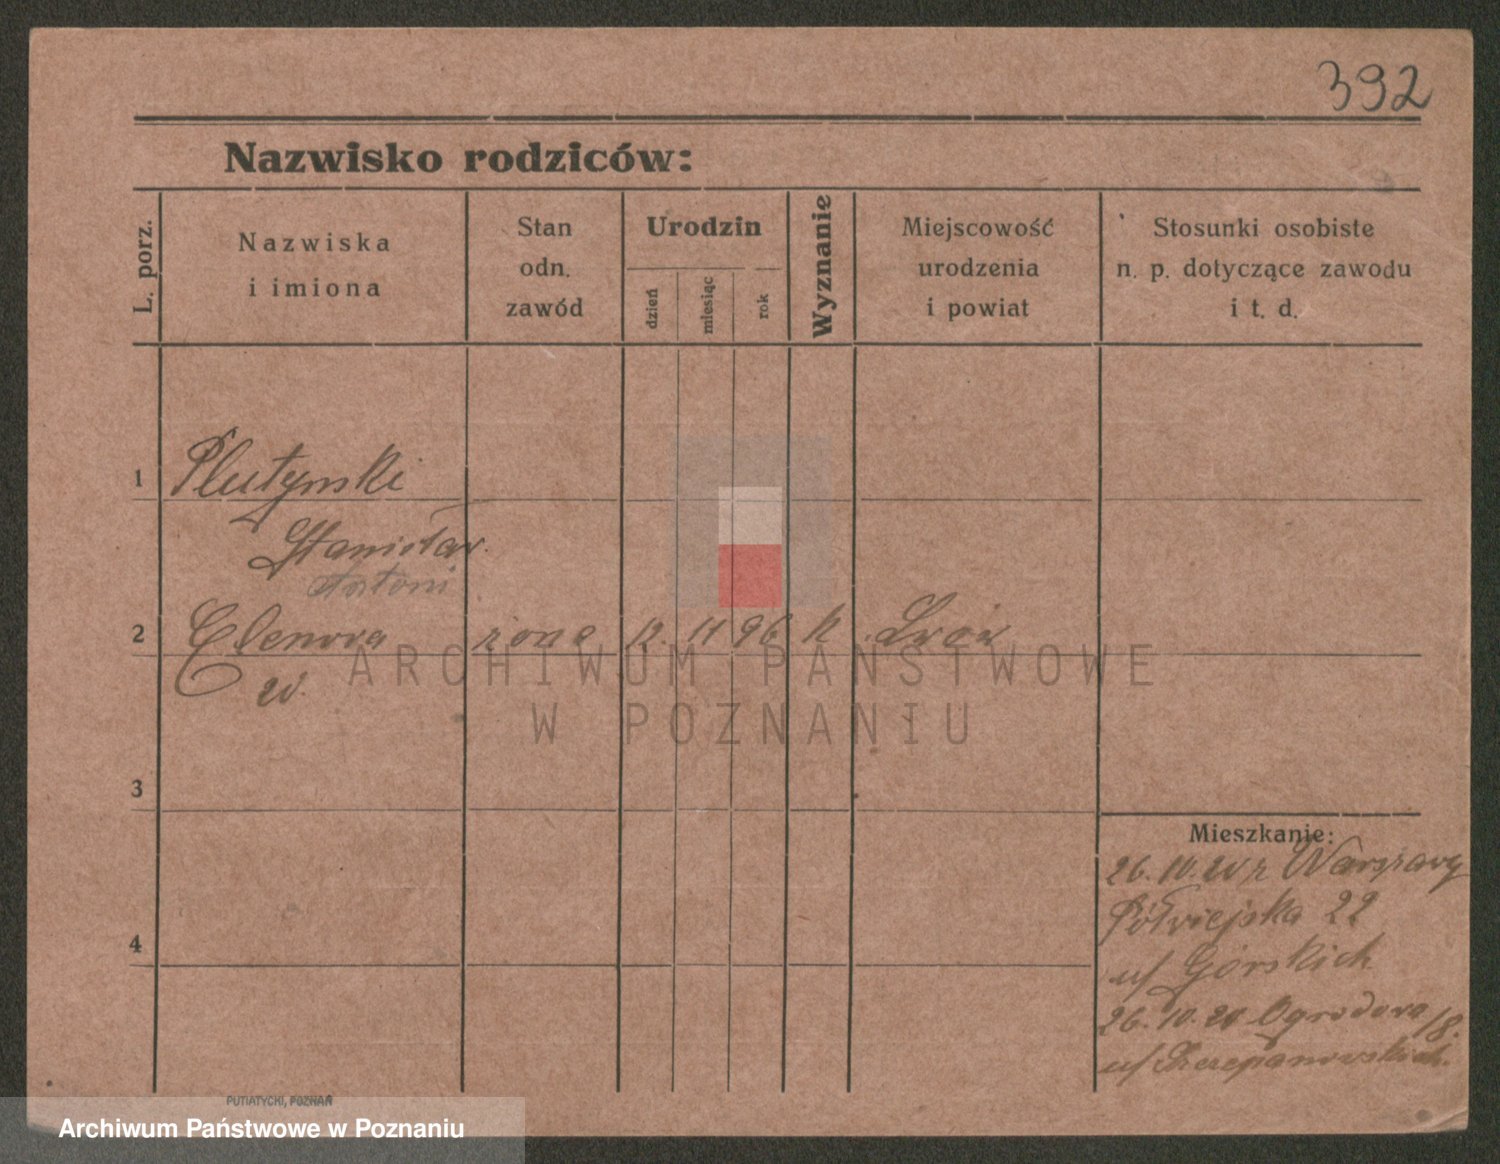 392
Nazwisko rodziców:
L. porz.
Nazwiska
i imiona
Stan
odn.
zawód
Urodzin
dzień
miesiąc
rok
Wyznanie
Miejscowość
urodzenia
i powiat
Stosunki osobiste
n. p. dotyczące zawodu
i t. d.
1
Plutynski
Stanisław
Antoni
2 żona 12. 11 96 k Lwów
w.
ARCHIWUM PAŃSTWOWE
W POZNANIU
3
4
Mieszkanie:
26.10.20 z Warszawy
Półwiejska 22
u/ Górskich
26.10.20 Ogrodowa 18.
u/ Szczepanowskich.
PUTIATYCKI, POZNAŃ
Archiwum Państwowe w Poznaniu